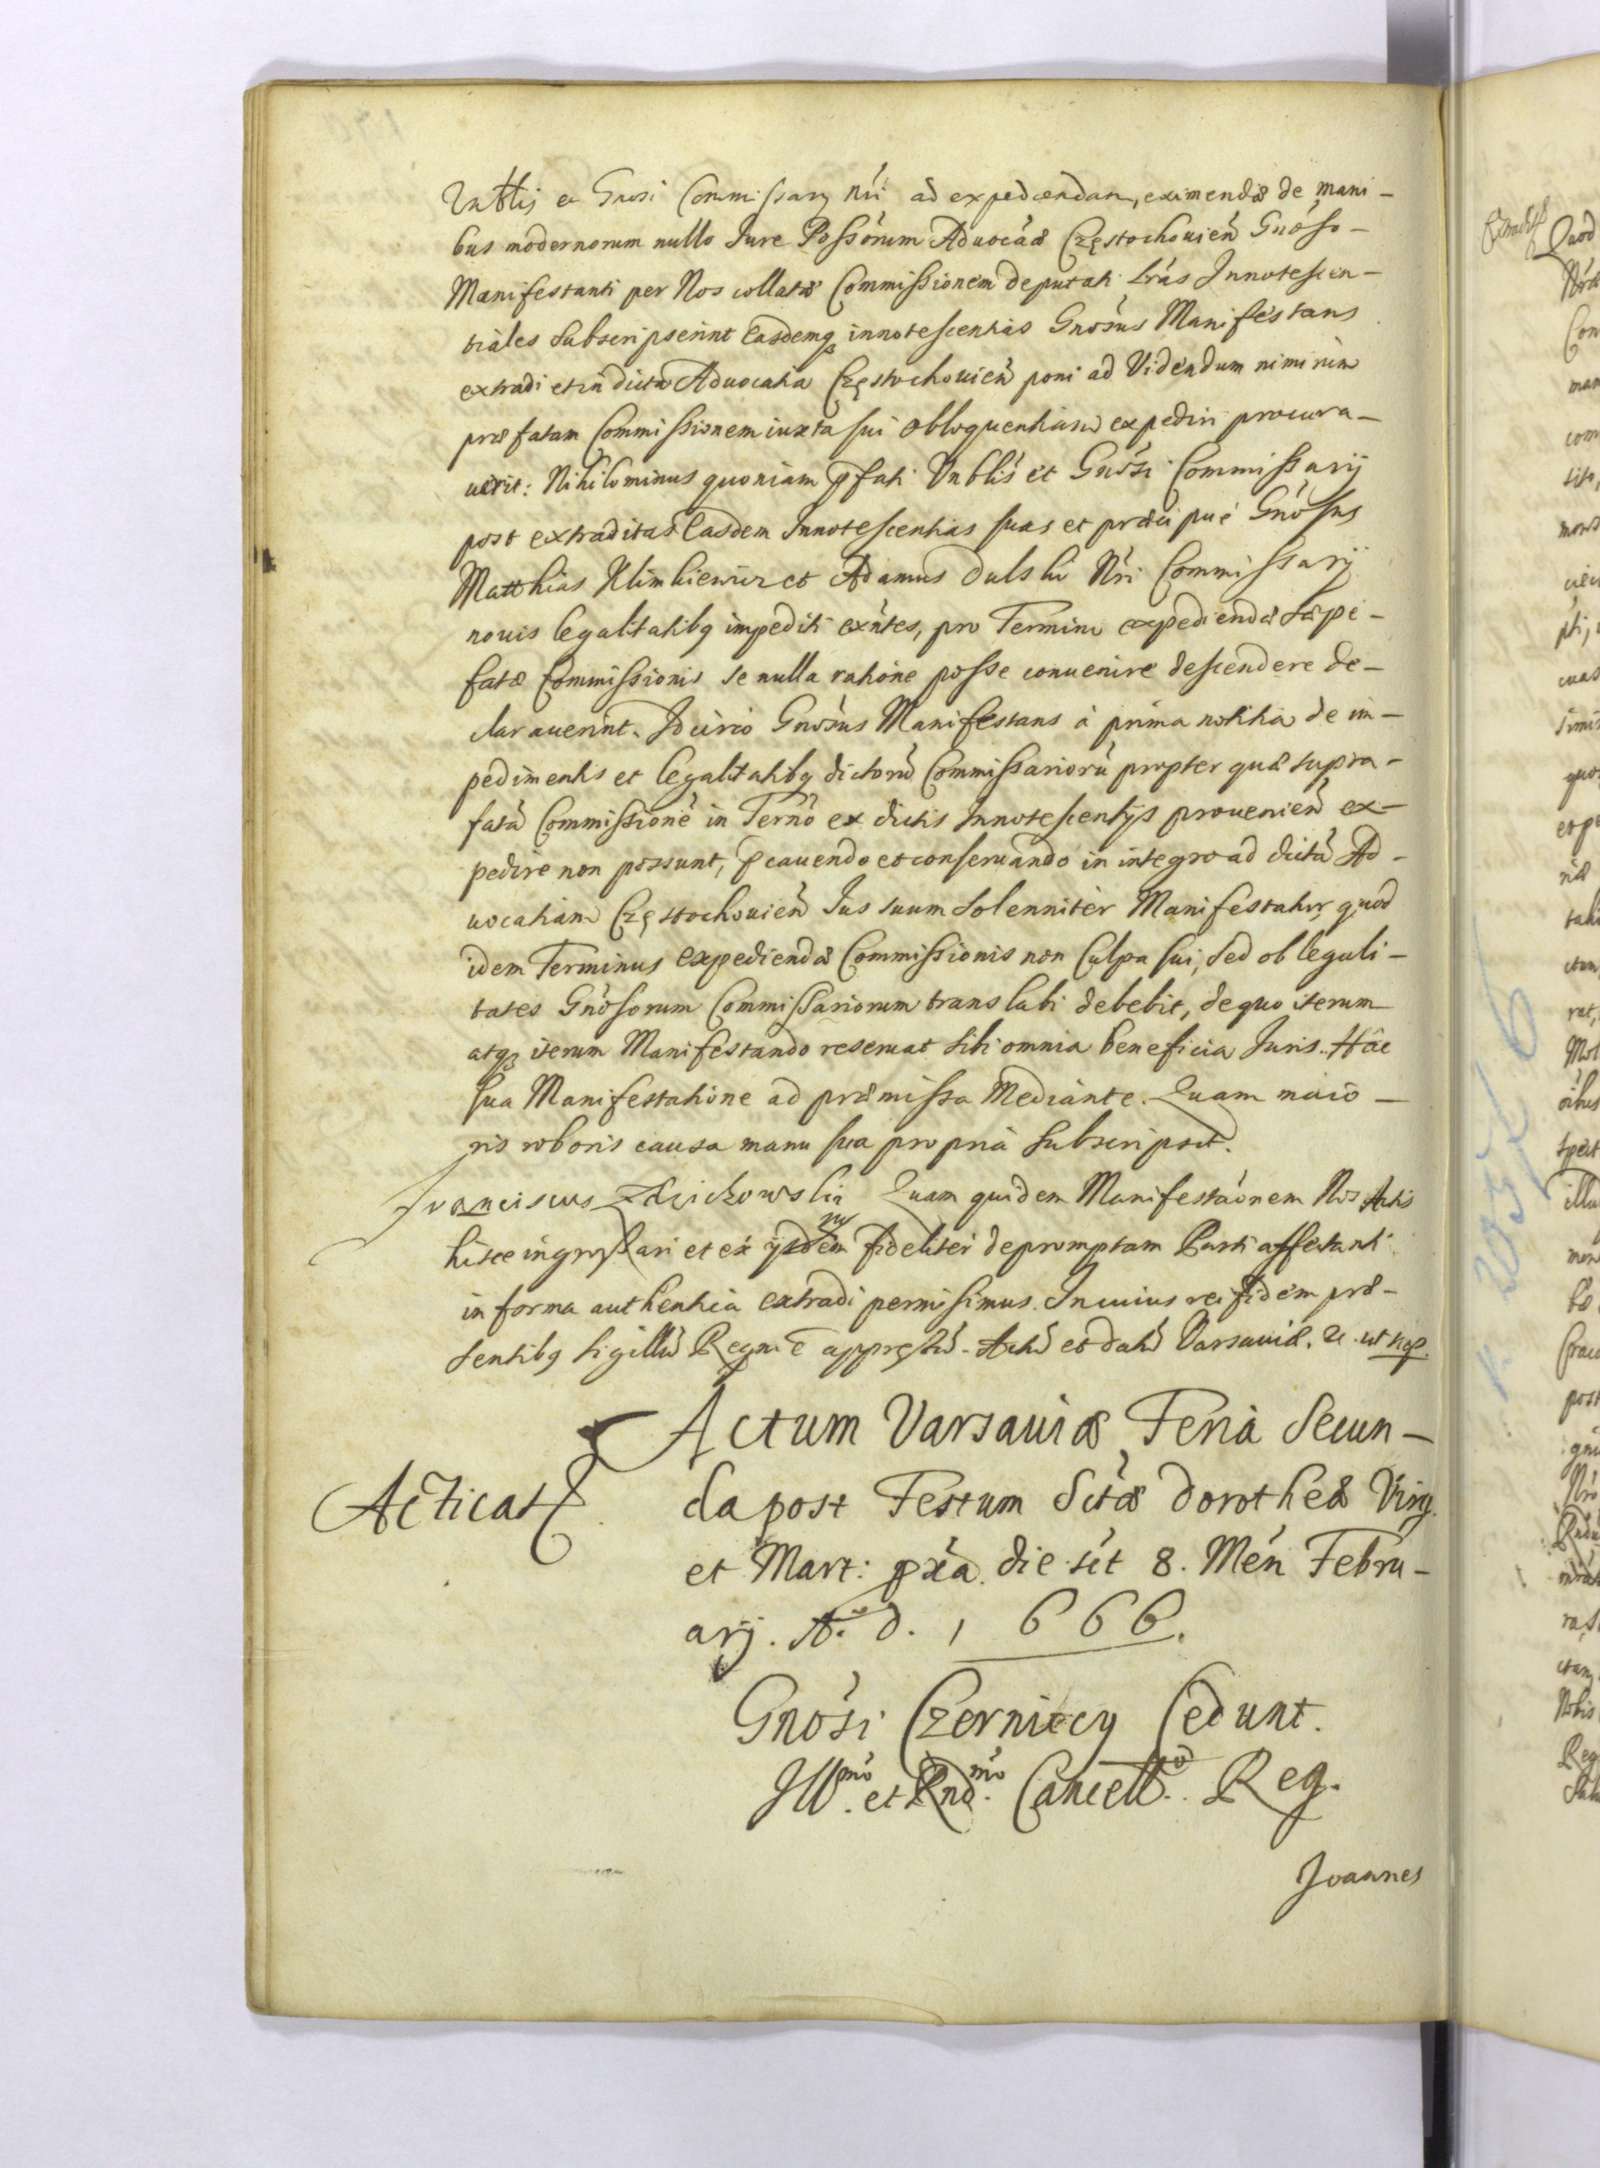 Vrbtis et Gnosi Commissarij nri ad expediendam, eximendæ de mani-
bus modernorum nullo Iure Possorum Advocãæ Częstochouień Gnoso-
Manifestanti per Nos collatæ Commissionem deputati Lras Innotescen-
tiales subscripserint Easdemq innotescentias Gnosus Manifestans
extradi et in dicta Aduocatia Częstochouień poni ad Videndum nimirum
præfatam Commissionem iuxta sui obloquentiam expediri procura-
uerit: Nihilominus quoniam pfati Vrblis et Gnosi Commissarij
post extraditas Easdem Innotescentias suas et præcipuè Gnosus
Matthias Klimkiewicz et Adamus Dulski Nri Commissarij
nouis legalitatibq impediti exntes, pro Termino expediendæ sæpe-
fatæ Commissionis se nulla ratione posse conuenire descendere de-
clarauerint. Idcirco Gnosus Manifestans à prima notitia de im-
pedimentis et legalitatibq dictorũ Commissariorũ propter quæ supra-
fatã Commissionẽ in Terño ex dictis Innotescentijs prouenień ex-
pedire non possunt, pcauendo et conseruando in integro ad dictã Ad-
uocatiam Częstochouień Ius suum solenniter Manifestatur, quod
idem Terminus expediendæ Commissionis non Culpa sui, sed ob legali-
tates Gnosorum Commissariorum translabi debebit, de quo iterum
atqз iterum Manifestando reseruat sibi omnia beneficia Iuris. Hâc
sua Manifestatione ad præmissa Mediante. Quam maio-
ris roboris causa manu sua propria subscripsit.
Franciscus Zdzichowski Quam quidem Manifestaõnem Nos Actis
hisce ingrossari et ex ijsdem fideliter depromptam Parti affectanti
in forma authentica extradi permisimus. In cuius rei fidem præ-
sentibq sigillũ Regni ẽ appressũ. Actũ et datũ Varsauiæ. &c. ut sup.
Actum Varsauiæ Feria Secun-
da post Festum Sctæ Dorotheæ Virg.
et Mart: pxa. die sct 8. Men Febru-
arij. A.o D. 1666.
Acticat
Gnosi Czerniecy Cedunt.
Illmo. et Rndmo. Cancello. Reg.
Joannes